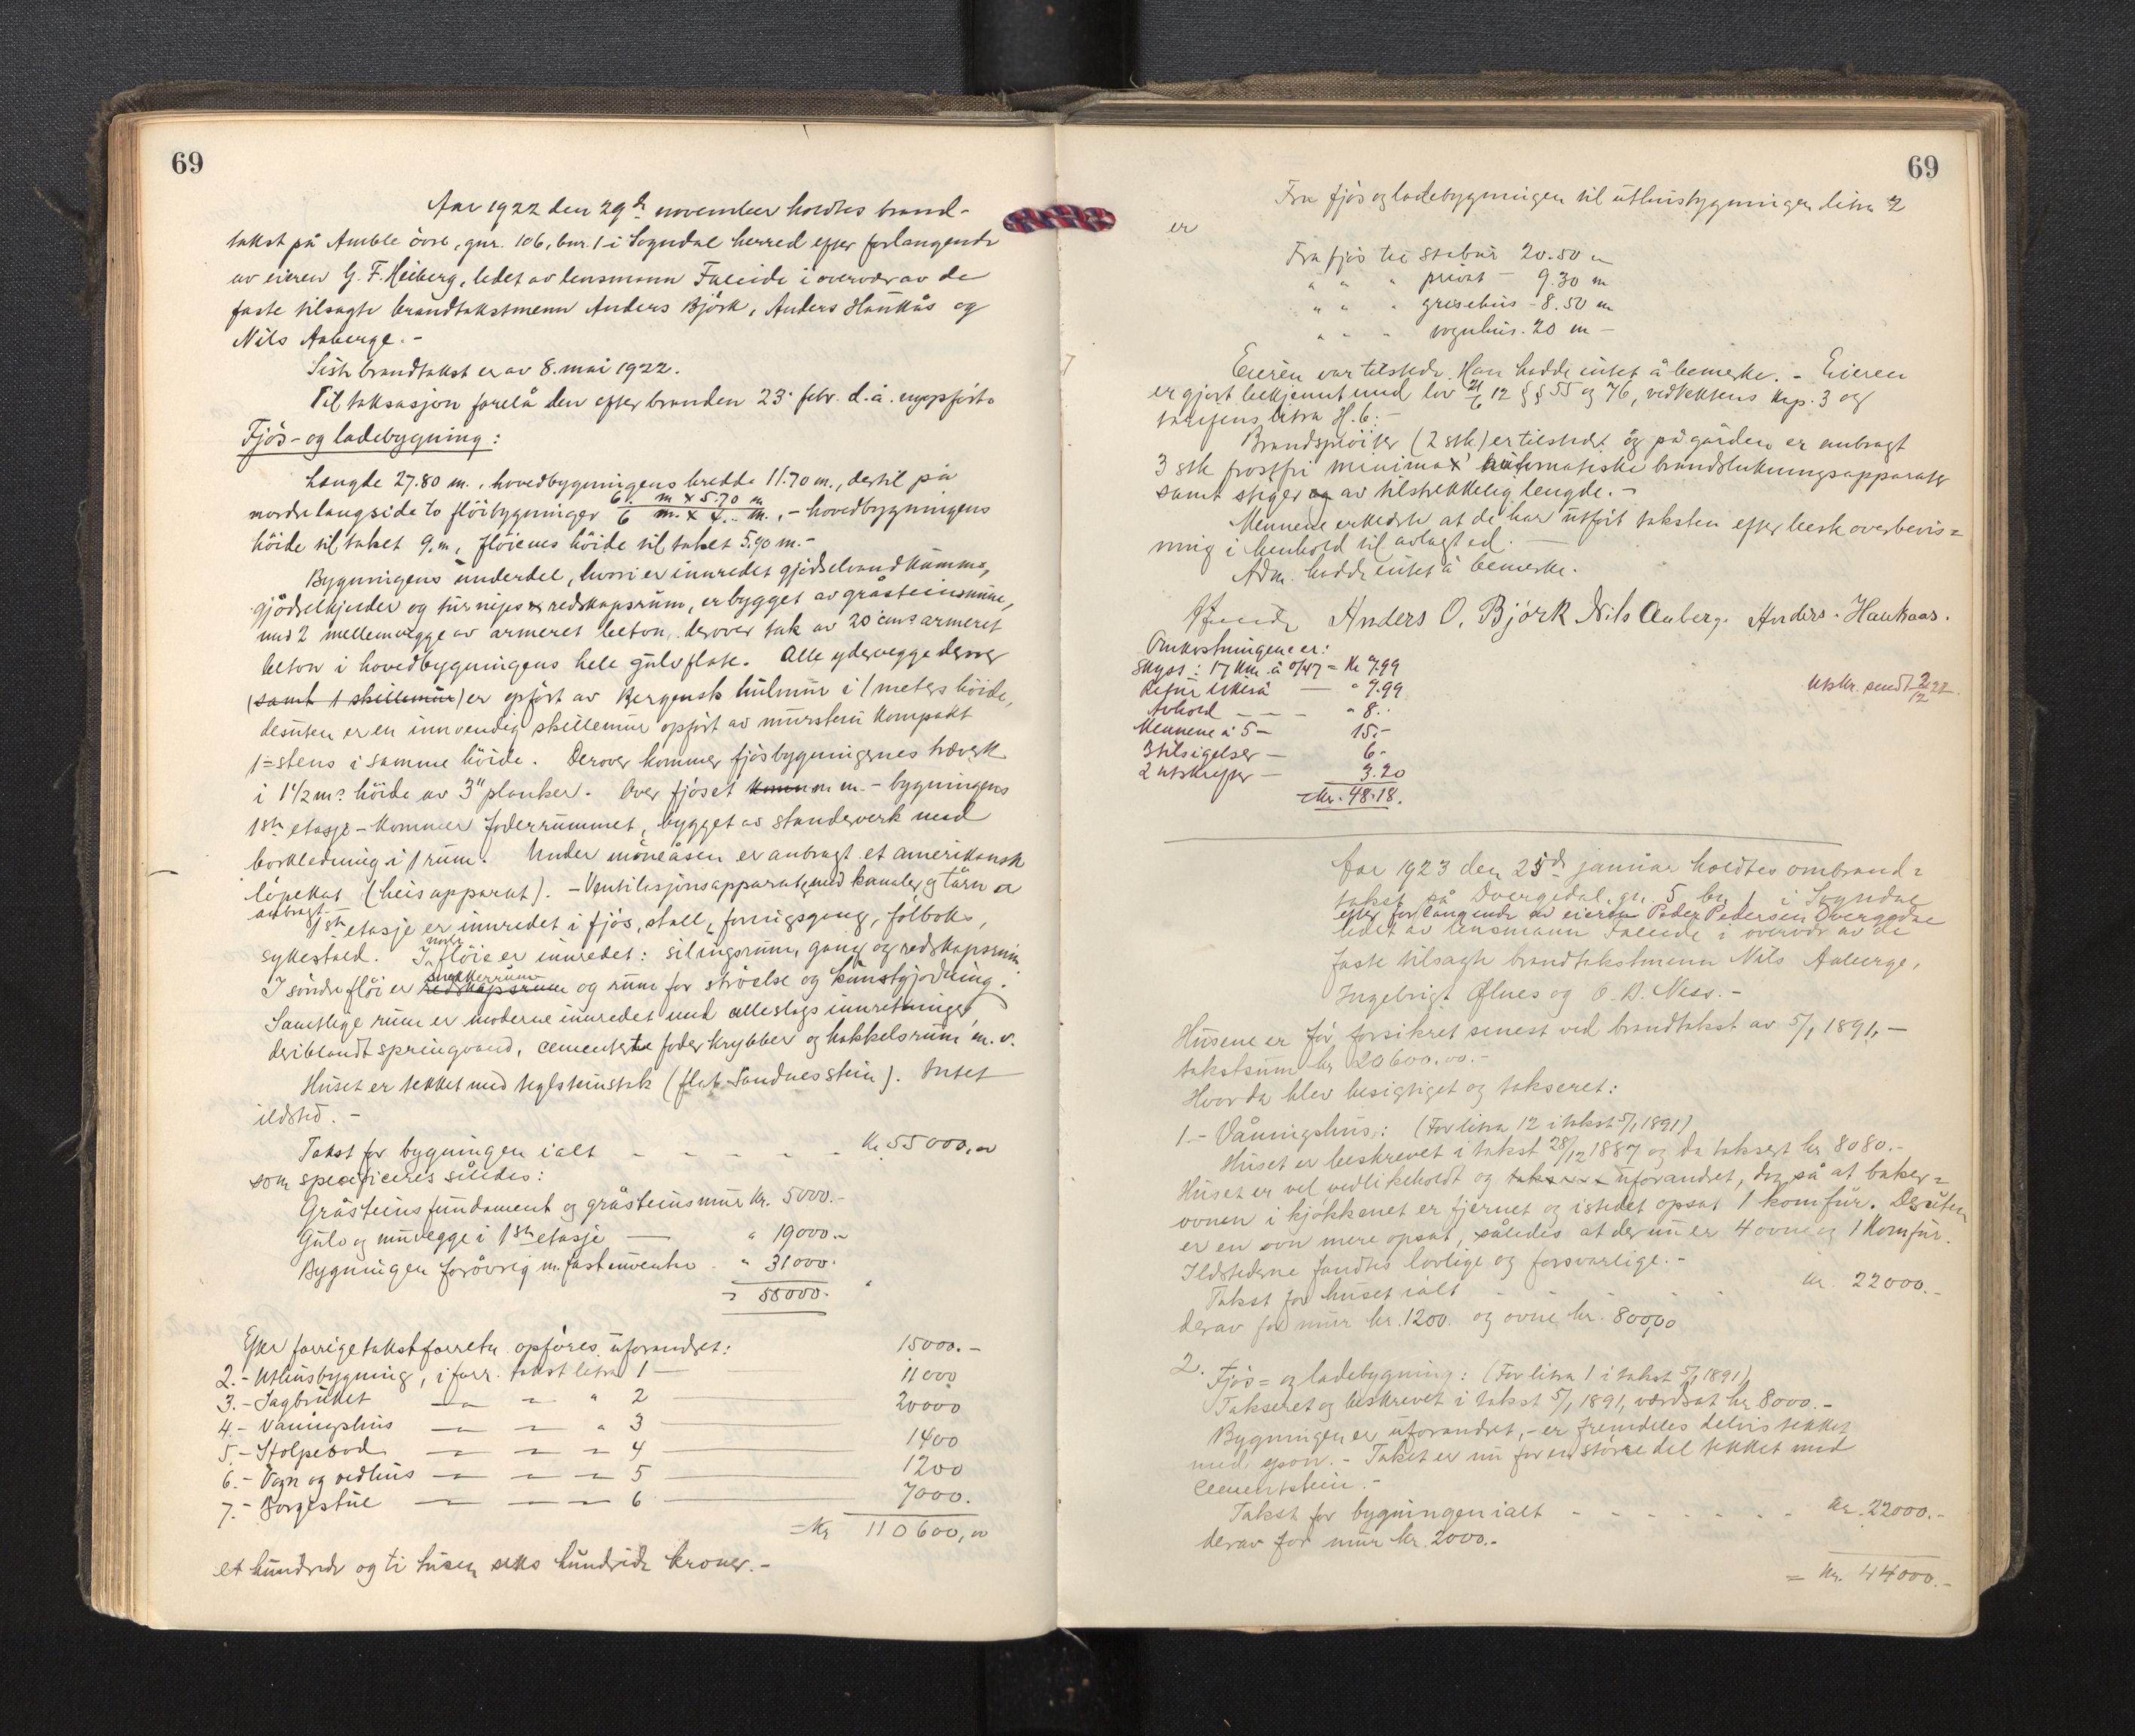 69
Aar 1922 den 29de november holdtes brand-
takst på Amble övre, gnr. 106, bnr. 1 i Sogndal herred efter forlangende
av eieren G. F. Heiberg, ledet av lensmann Faleide i overvær av de
faste tilsagte brandtakstmenn Anders Björk, Anders Haukås og
Nils Aaberge. -
Siste brandtakst er av 8. mai 1922.
Til taksasjon forelå den efter branden 23. febr. d.å. nyopförte
Fjös- og ladebygning:
Længde 27.80 m., hovedbygningens bredde 11.70 m., dertil på
nordre langside to flöibygninger 6. m x 5.70 m
6 m. x 4.. m., - hovedbygningens
höide til taket 9. m, flöienes höide til taket 5.90 m. -
Bygningens underdel, hvori er innredet gjödselvandkumme,
gjödselkjelder og turnips & redskapsrum, er bygget av gråsteinsmure,
med 2 mellemvegge av armeret beton, derover tak av 20 cm? armeret
beton i hovedbygningens hele gulvflate. Alle ydervegge derover
(samt 1 skillemur) er opfört av Bergensk hulmur i 1 meters höide,
desuten er en innvendig skillemur opfört av murstein kompakt
1-stens i samme höide. Derover kommer fjösbygningernes træverk
i 1 1/2 m? höide av 3" planker. Over fjöset m. m. - bygningens
1ste etasje - kommer foderrummet, bygget av standerverk med
bordkledning i 1 rum. Under möneåsen er anbragt et amerikansk
löpekat (heisapparat). - Ventilasjonsapparat med kanaler og tårn er
anbragt.
1ste etasje er innredet i fjös, stall, foringsgang, fölboks,
sykestald. I nordre flöi er innredet: silingsrum, gang og redskapsrum
I söndre flöi er redskapsrum snekkerrum og rum for ströelse og kunstgjödning.
Samtlige rum er moderne innredet med alleslags innretninger,
deriblandt springvand, cementerte foderkrybber og hakkelsrum m. v.
Huset er tekket med teglsteinstak (flat Sandnesstein). Intet
ildsted. -
Takst for bygningen ialt - - - - - Kr. 55000,00
som specificeres således:
Gråsteinsfundament og gråsteinsmur kr. 5000.-
Gulv og murvegge i 1ste etasje — " 19000.-
Bygningen forövrig m. fast inventar " 31000.
= 55000.
Efter forrige takstforretn. opföres uforandret: 15000.-
2.- Uthusbygning, i forr. takst litra 1 — 11000
3.- Sagbruket — — " 2 — 20000
4.- Våningshus — — " 3 —
5.- Stolpebod — — — 4 — 1400
6.- Vogn og vedhus — — — 5 — 1200
7.- Borgestue — — — 6 — 7000.
= Kr 110600,00
et hundrede og ti tusen seks hundrede kroner. -
69
Fra fjös og ladebygningen til uthusbygningen litra 2
er
Fra fjös til stabur 20.50 m
" " " privat - 9.30 m
" " " grisehus - 8.50 m
" " " vognhus. 20 m -
Eieren var tilstede. Han hadde intet å bemerke. - Eieren
er gjort bekjent med lov 21/6 12 §§ 55 og 76, vedtektens kap. 3 og
tarifens litra H. 6. -
Brandspröiter (2 stk.) er tilstede og på gården er anbragt
3 stk frostfri "minimax" automatiske brandslukningsapparater
samt stiger og av tilstrekkelig lengde. -
Mennene erklærte at de har utfört taksten efter beste overbevis=
ning i henhold til avlagt ed. —
Adm. hadde intet å bemerke.
Faleide Anders O. Björk Nils Aaberge Anders Haukaas.
Omkostningene er:
Skyss: 17 km. à 0/47 = kr 7.99
Retur likeså — " 7.99
Avhold — — - " 8..
Mennene à 5 - 15.-
3 tilsigelser — 6-
2 utskrifter — 3.20
= Kr. 48.18.
Utskr. sendt 2/12 22.
Aar 1923 den 25de januar holdtes ombrand=
takst på Dvergedal, gn. 5 bn. 1 i Sogndal
efter forlangende av eieren Peder Pedersen Dvergedal
ledet av lensmann Faleide i overvær av de
faste tilsagte brandtakstmenn Nils Aaberge,
Ingebrigt Ølnes og O. B. Ness. -
Husene er för forsikret senest ved brandtakst av 5/1 1891, -
takstsum kr 20600.00. -
Hvorda blev besigtiget og takseret:
1. - Våningshus: (För litra 12 i takst 5/1 1891)
Huset er beskrevet i takst 28/12 1887 og da taksert kr 8080.-
Huset er vel vedlikeholdt og uforandret, dog så at baker=
ovnen i kjökkenet er fjernet og istedet opsat 1 komfur. Desuten
er en ovn mere opsat, således at der nu er 4 ovne og 1 komfur.
Ildstederne fandtes lovlige og forsvarlige. -
Takst for huset ialt - - - - kr. 22000.-
derav for mur kr. 1200. og ovne kr. 800,00
2. Fjös= og ladebygning: (För litra 1 i takst 5/1 1891)
Takseret og beskrevet i takst 5/1 1891, værdsat kr 8000. -
Bygningen er uforandret, - er fremdeles delvis tekket
med spon. - Taket er nu for en större del tekket med
Cementstein. -
Takst for bygningen ialt - - - - - - - kr. 22000.-
derav for mur kr. 2000.-
= kr. 44000.-